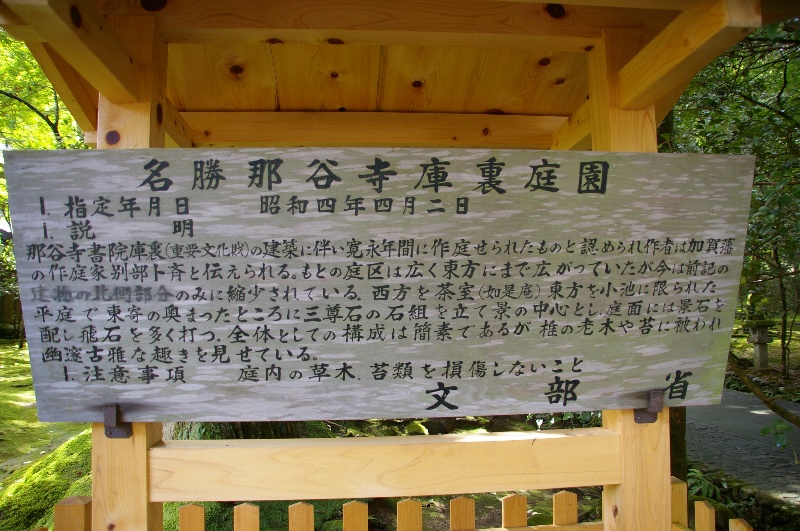 名勝那谷寺庫裏庭園
1. 指定年月日 昭和四年四月二日
1. 説 明
那谷寺書院庫裏(重要文化財)の建築に伴い寛永年間に作庭せられたものと認められ作者は加賀藩
の作庭家別部卜斉と伝えられる。もとの庭区は広く東方にまで広がっていたが今は前記の
建物の北側部分のみに縮少されている。西方を茶室(如是庵)東方を小池に限られた
平庭で東寄の奥まったところに三尊石の石組を立て景の中心とし.庭面には景石を
配し飛石を多く打つ.全体としての構成は簡素であるが椎の老木や苔に被われ
幽邃古雅な趣きを見せている。
1.注意事項 庭内の草木.苔類を損傷しないこと
文部省